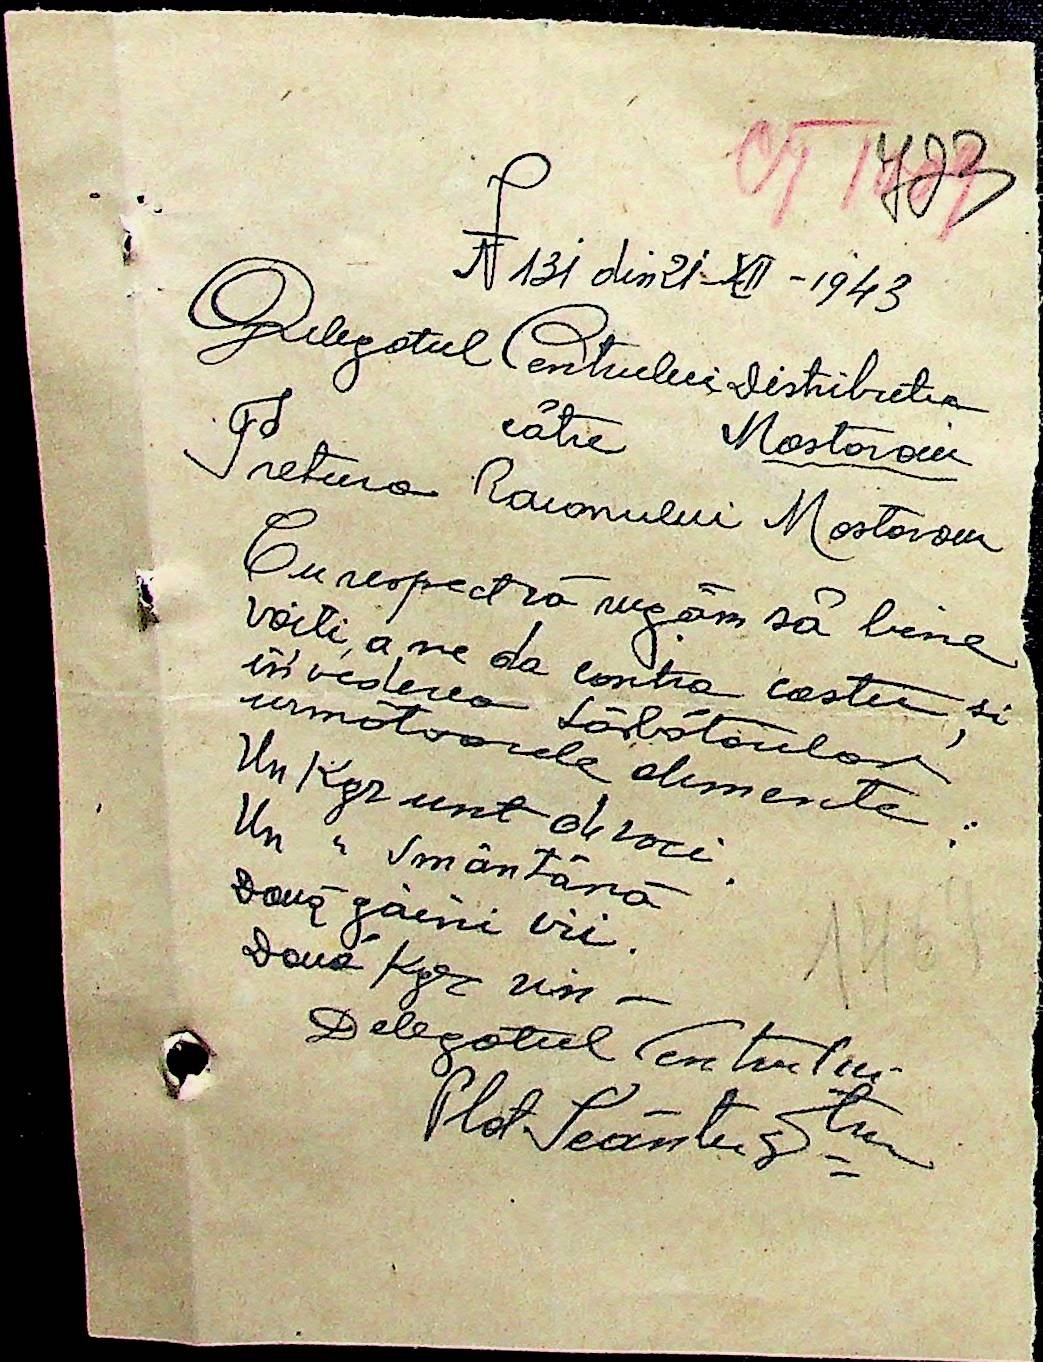 723
N 131 din 21-XII-1943
Delegatul Centrului Distributia
către Mostovoiu
Pretura Raionului Mostovoiu
Cu respect vă rugăm să bine
voiti, a ne da contra cost, si
în vederea Sărbătorilor,
următoarele alimente:
Un Kgr unt de vaci.
Un " Smântână
Două găini vii.
Două Kgr vin —
Delegatul Centrului
Plot.